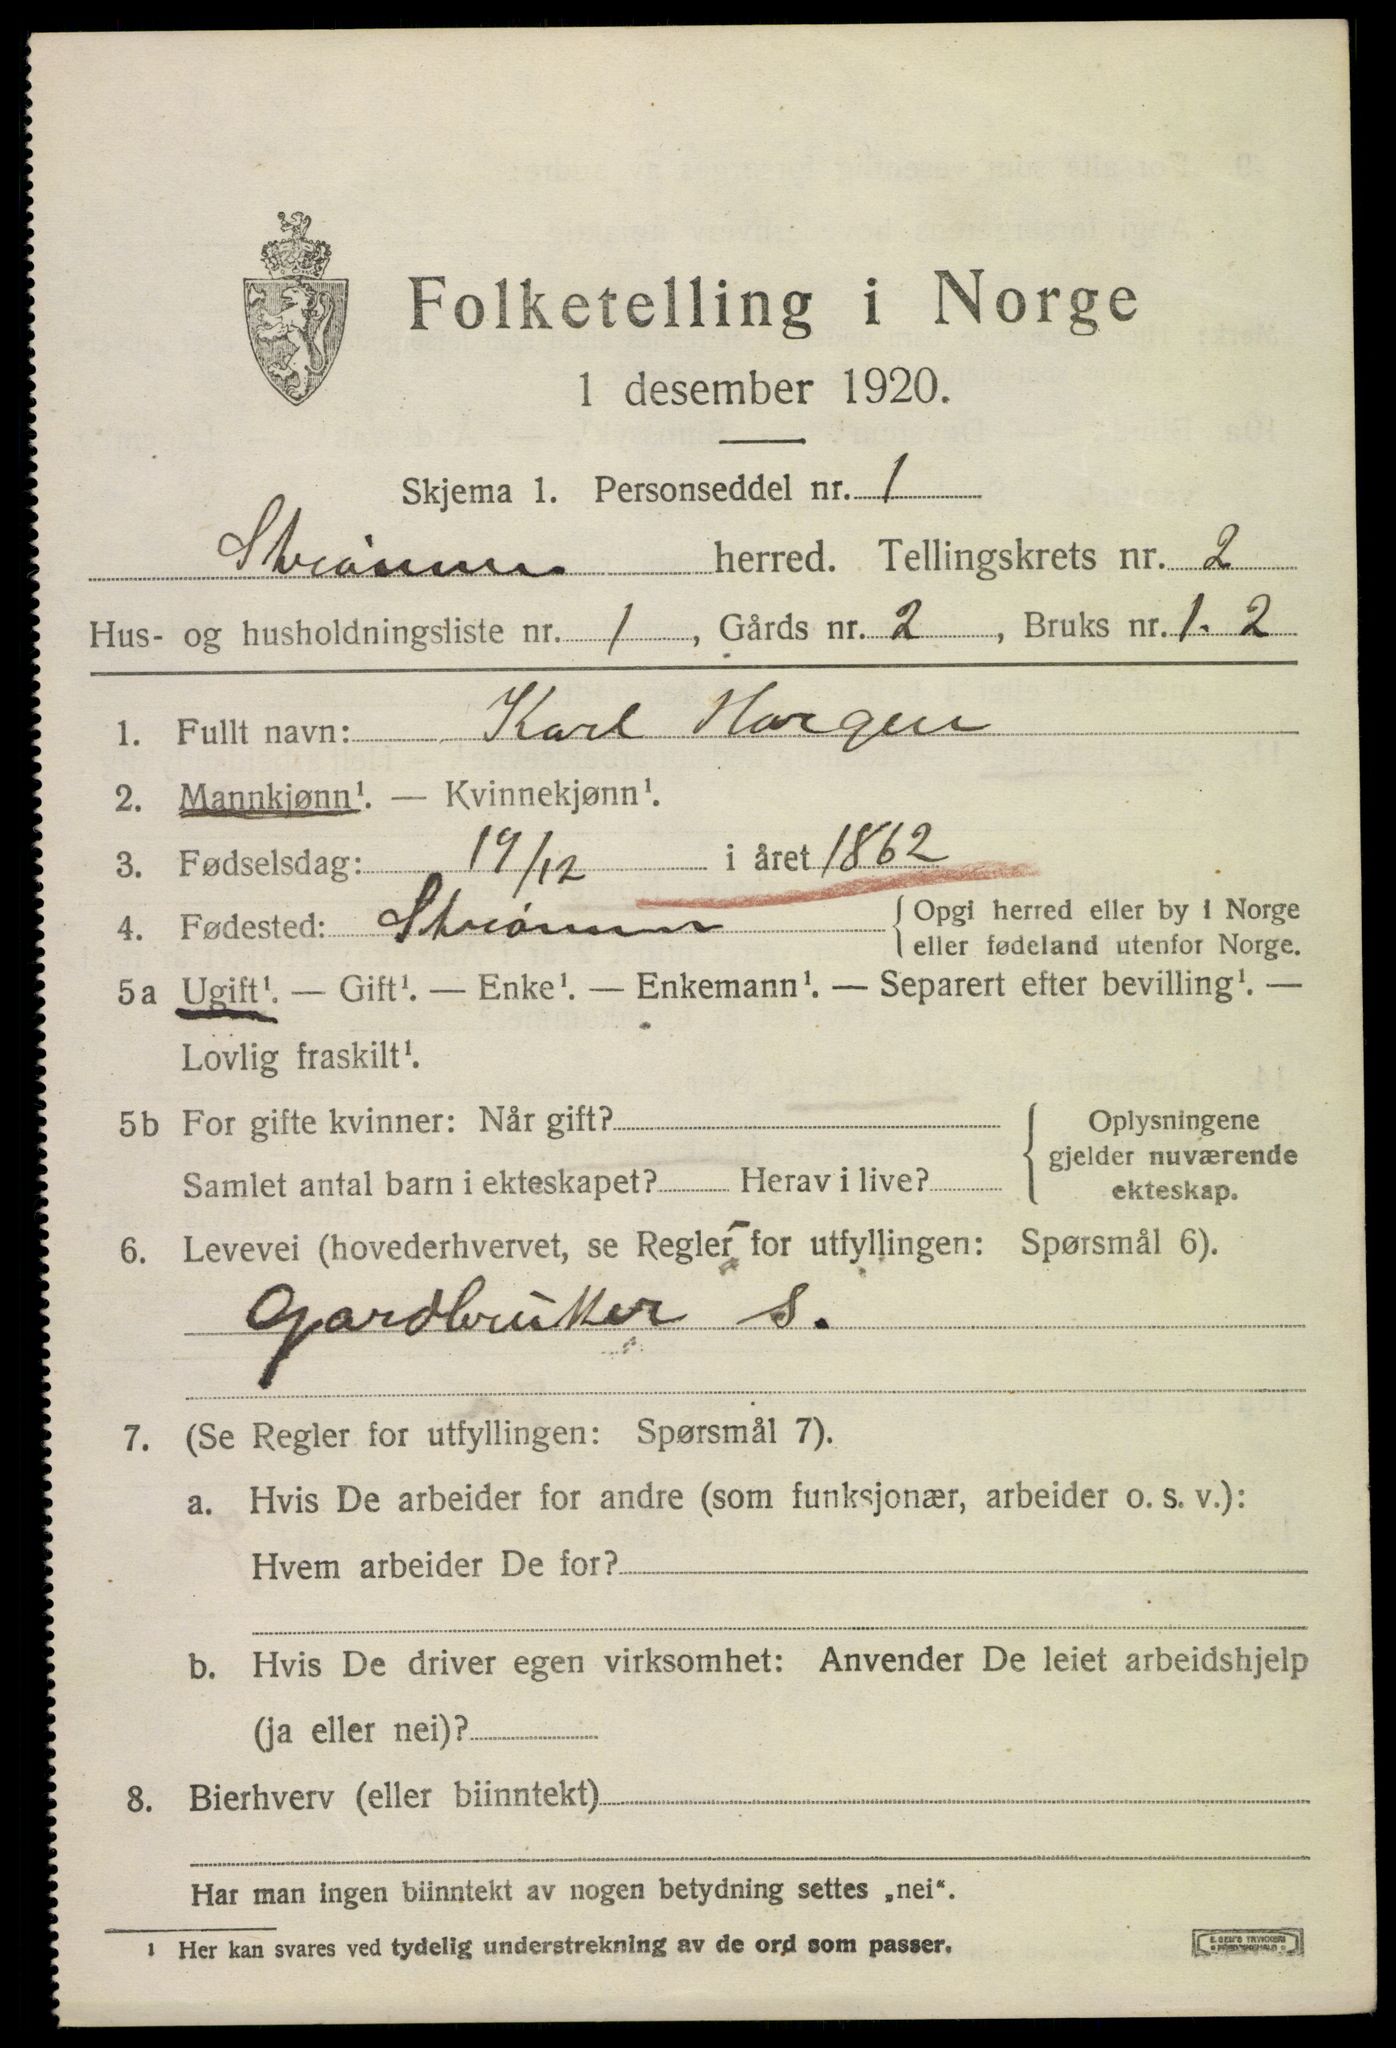 Folketelling i Norge
1 desember 1920.
Skjema 1. Personseddel nr. 1
Strømm herred. Tellingskrets nr. 2
Hus- og husholdningsliste nr. 1, Gårds nr. 2, Bruks nr. 1. 2
1. Fullt navn: Karl Horgen
2. Mannkjønn¹. — Kvinnekjønn¹.
3. Fødselsdag: 19/12 i året 1862
4. Fødested: Strømm { Opgi herred eller by i Norge
eller fødeland utenfor Norge.
5a Ugift¹. — Gift¹. — Enke¹. — Enkemann¹. — Separert efter bevilling¹. —
Lovlig fraskilt¹.
5b For gifte kvinner: Når gift?
Samlet antal barn i ekteskapet? Herav i live?
{ Oplysningene
gjelder nuværende
ekteskap.
6. Levevei (hovederhvervet, se Regler for utfyllingen: Spørsmål 6).
Gardbruker s.
7. (Se Regler for utfyllingen: Spørsmål 7).
a. Hvis De arbeider for andre (som funksjonær, arbeider o. s. v.):
Hvem arbeider De for?
b. Hvis De driver egen virksomhet: Anvender De leiet arbeidshjelp
(ja eller nei)?
8. Bierhverv (eller biinntekt)
Har man ingen biinntekt av nogen betydning settes „nei“.
¹ Her kan svares ved tydelig understrekning av de ord som passer.